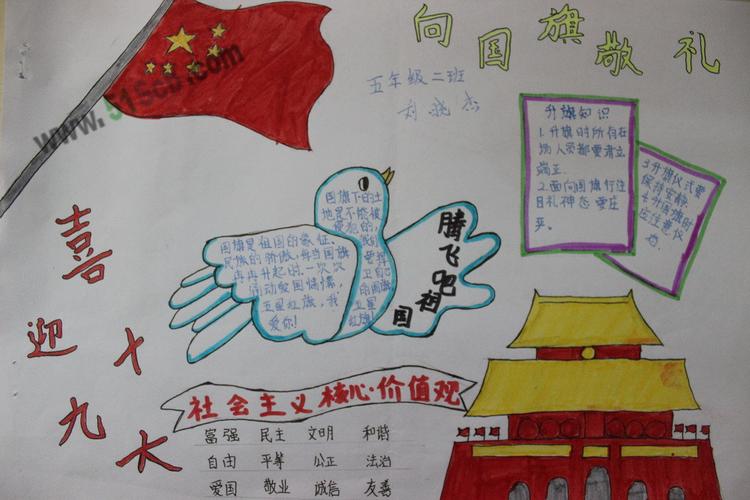 www.515cb.com
向国旗敬礼
五年级二班
刘晓杰
升旗知识
1.升旗时所有在
场人员都要肃立
端正.
2.面向国旗行注
目礼神态要庄
3.升旗仪式要
保持安静.
4.升国旗时
应注意仪
喜
迎十
九大
国旗下的土
地是不能被
侵犯的,
我们
要捍
卫自己
的国旗
卫星
红旗!
国旗是祖国的象征.
民族的骄傲,每当国旗
冉冉升起时.一次次
爱国情操,
五星红旗,我
爱你!
腾飞吧祖国
社会主义核心·价值观
富强 民主 文明 和谐
自由 平等 公正 法治
爱国 敬业 诚信 友善